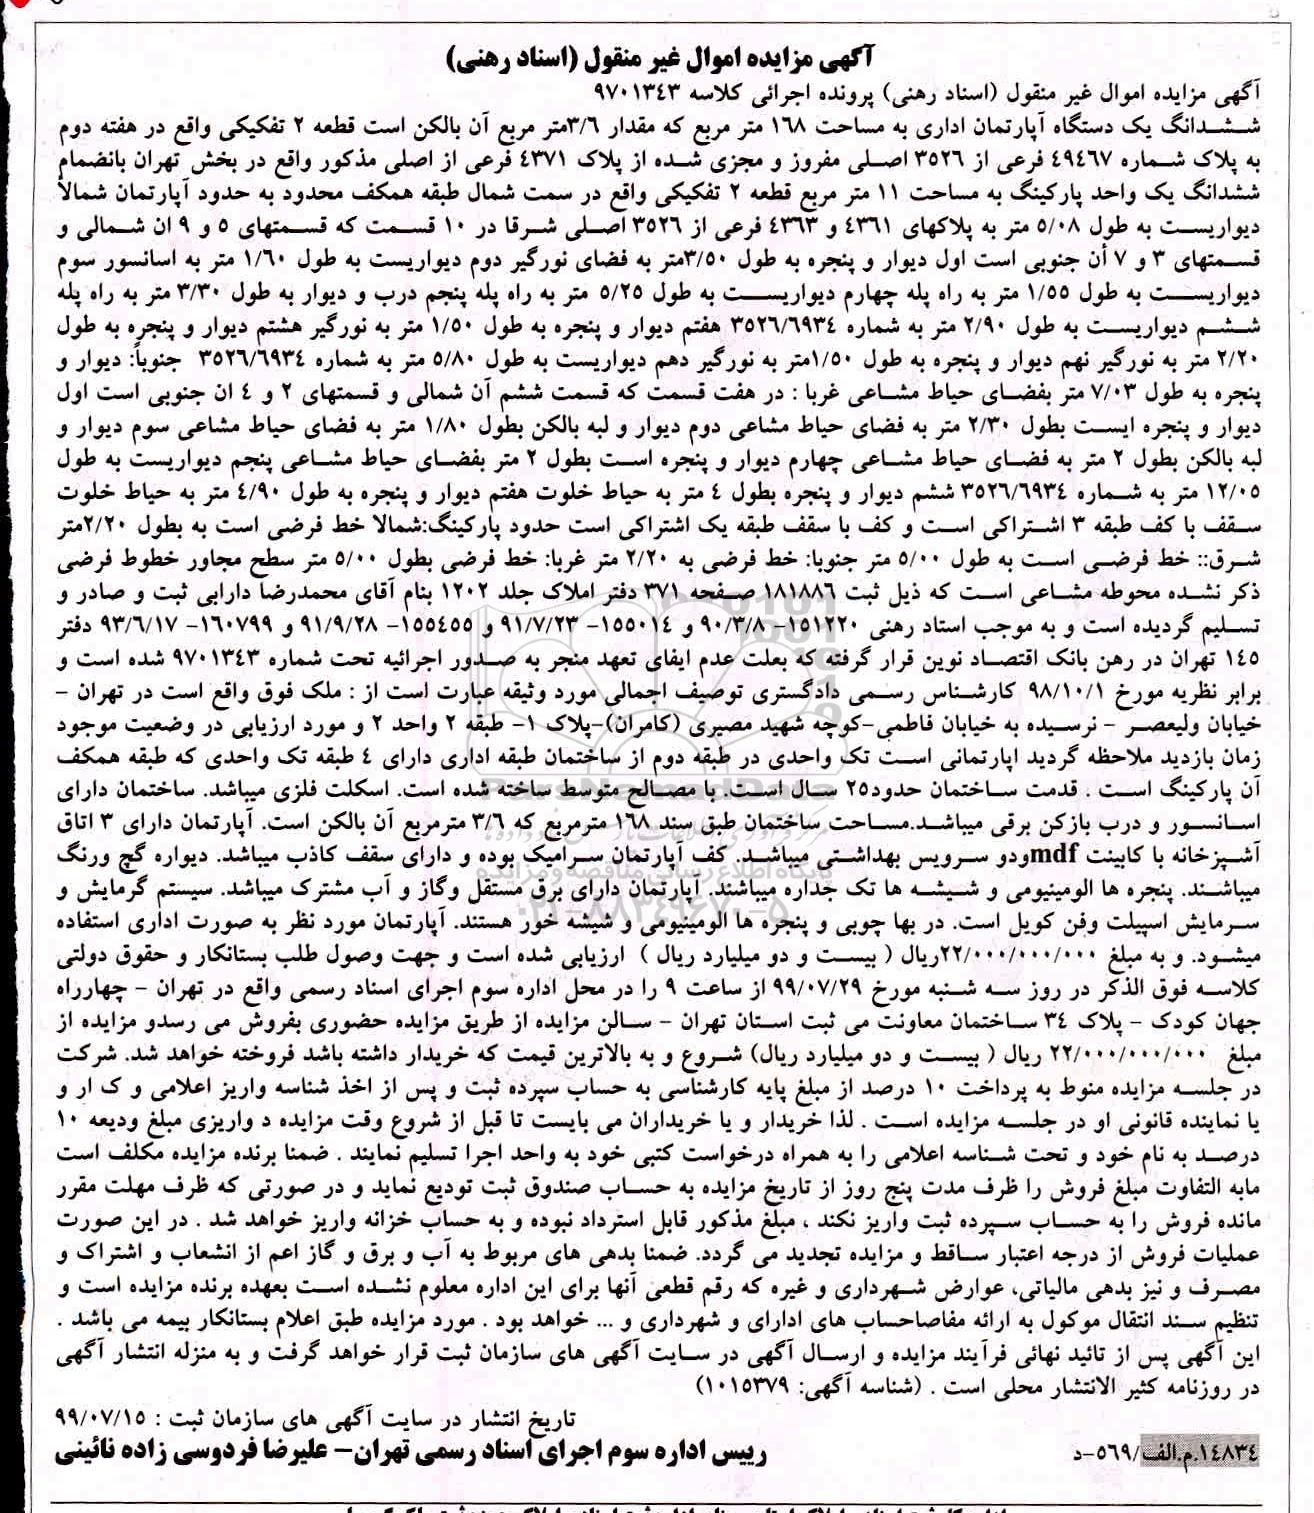 آگهی مزایده اموال غیر منقول (اسناد رهنی)
آگهی مزایده اموال غیر منقول (اسناد رهنی) پرونده اجرائی کلاسه ۹۷۰۱۳۴۳
ششدانگ یک دستگاه آپارتمان اداری به مساحت ۱۶۸ متر مربع که مقدار ۳/۶متر مربع آن بالکن است قطعه ۲ تفکیکی واقع در هفته دوم
به پلاک شماره ۴۹۴۶۷ فرعی از ۳۵۲۶ اصلی مفروز و مجزی شده از پلاک ۴۳۷۱ فرعی از اصلی مذکور واقع در بخش تهران بانضمام
ششدانگ یک واحد پارکینگ به مساحت ۱۱ متر مربع قطعه ۲ تفکیکی واقع در سمت شمال طبقه همکف محدود به حدود آپارتمان شمالاً
دیواریست به طول ۵/۰۸ متر به پلاکهای ۴۳۶۱ و ۴۳۶۳ فرعی از ۳۵۲۶ اصلی شرقا در ۱۰ قسمت که قسمتهای ۵ و ۹ ان شمالی و
قسمتهای ۳ و ۷ أن جنوبی است اول دیوار و پنجره به طول ۳/۵۰متر به فضای نورگیر دوم دیواریست به طول ۱/۶۰ متر به اسانسور سوم
دیواریست به طول ۱/۵۵ متر به راه پله چهارم دیواریست به طول ۵/۲۵ متر به راه پله پنجم درب و دیوار به طول ۳/۳۰ متر به راه پله
ششم دیواریست به طول ۲/۹۰ متر به شماره ۳۵۲۶/۶۹۳۴ هفتم دیوار و پنجره به طول ۱/۵۰ متر به نورگیر هشتم دیوار و پنجره به طول
۲/۲۰ متر به نورگیر نهم دیوار و پنجره به طول ۱/۵۰متر به نورگیر دهم دیواریست به طول ۵/۸۰ متر به شماره ۳۵۲۶/۶۹۳۴ جنوباً: دیوار و
پنجره به طول ۷/۰۳ متر بفضای حیاط مشاعی غربا : در هفت قسمت که قسمت ششم آن شمالی و قسمتهای ۲ و ۴ ان جنوبی است اول
دیوار و پنجره ایست بطول ۲/۳۰ متر به فضای حیاط مشاعی دوم دیوار و لبه بالکن بطول ۱/۸۰ متر به فضای حیاط مشاعی سوم دیوار و
لبه بالکن بطول ۲ متر به فضای حیاط مشاعی چهارم دیوار و پنجره است بطول ۲ متر بفضای حیاط مشاعی پنجم دیواریست به طول
۱۲/۰۵ متر به شماره ۳۵۲۶/۶۹۳۴ ششم دیوار و پنجره بطول ۴ متر به حیاط خلوت هفتم دیوار و پنجره به طول ۴/۹۰ متر به حیاط خلوت
سقف با کف طبقه ۳ اشتراکی است و کف با سقف طبقه یک اشتراکی است حدود پارکینگ:شمالا خط فرضی است به بطول ۲/۲۰متر
شرق:: خط فرضی است به طول ۵/۰۰ متر جنوبا: خط فرضی به ۲/۲۰ متر غربا: خط فرضی بطول ۵/۰۰ متر سطح مجاور خطوط فرضی
ذکر نشده محوطه مشاعی است که ذیل ثبت ۱۸۱۸۸۶ صفحه ۳۷۱ دفتر املاک جلد ۱۲۰۲ بنام آقای محمدرضا دارابی ثبت و صادر و
تسلیم گردیده است و به موجب استاد رهنی ۱۵۱۲۲۰- ۹۰/۳/۸ و ۱۵۵۰۱۴- ۹۱/۷/۲۳ و ۱۵۵۴۵۵- ۹۱/۹/۲۸ و ۱۶۰۷۹۹- ۹۳/۶/۱۷ دفتر
۱۴۵ تهران در رهن بانک اقتصاد نوین قرار گرفته که بعلت عدم ایفای تعهد منجر به صدور اجرائیه تحت شماره ۹۷۰۱۳۴۳ شده است و
برابر نظریه مورخ ۹۸/۱۰/۱ کارشناس رسمی دادگستری توصیف اجمالی مورد وثیقه عبارت است از : ملک فوق واقع است در تهران -
خیابان ولیعصر - نرسیده به خیابان فاطمی-کوچه شهید مصیری (کامران)-پلاک ۱- طبقه ۲ واحد ۲ و مورد ارزیابی در وضعیت موجود
زمان بازدید ملاحظه گردید اپارتمانی است تک واحدی در طبقه دوم از ساختمان طبقه اداری دارای ۴ طبقه تک واحدی که طبقه همکف
آن پارکینگ است . قدمت ساختمان حدود۲۵ سال است. با مصالح متوسط ساخته شده است. اسکلت فلزی میباشد. ساختمان دارای
اسانسور و درب بازکن برقی میباشد.مساحت ساختمان طبق سند ۱۶۸ مترمربع که ۳/۶ مترمربع آن بالکن است. آپارتمان دارای ۳ اتاق
آشپزخانه با کابینت mdfودو سرویس بهداشتی میباشد. کف آپارتمان سرامیک بوده و دارای سقف کاذب میباشد. دیواره گچ ورنگ
میباشند. پنجره ها الومینیومی و شیشه ها تک جداره میباشند. آپارتمان دارای برق مستقل وگاز و آب مشترک میباشد. سیستم گرمایش و
سرمایش اسپیلت وفن کویل است. در بها چوبی و پنجره ها الومینیومی و شیشه خور هستند. آپارتمان مورد نظر به صورت اداری استفاده
میشود. و به مبلغ ۲۲/۰۰۰/۰۰۰/۰۰۰ریال ( بیست و دو میلیارد ریال ) ارزیابی شده است و جهت وصول طلب بستانکار و حقوق دولتی
کلاسه فوق الذکر در روز سه شنبه مورخ ۹۹/۰۷/۲۹ از ساعت ۹ را در محل اداره سوم اجرای اسناد رسمی واقع در تهران - چهارراه
جهان کودک - پلاک ۳۴ ساختمان معاونت می ثبت استان تهران - سالن مزایده از طریق مزایده حضوری بفروش می رسدو مزایده از
مبلغ ۲۲/۰۰۰/۰۰۰/۰۰۰ ریال ( بیست و دو میلیارد ریال) شروع و به بالاترین قیمت که خریدار داشته باشد فروخته خواهد شد. شرکت
در جلسه مزایده منوط به پرداخت ۱۰ درصد از مبلغ پایه کارشناسی به حساب سپرده ثبت و پس از اخذ شناسه واریز اعلامی و ک ار و
یا نماینده قانونی او در جلسه مزایده است . لذا خریدار و یا خریداران می بایست تا قبل از شروع وقت مزایده د واریزی مبلغ ودیعه ۱۰
درصد به نام خود و تحت شناسه اعلامی را به همراه درخواست کتبی خود به واحد اجرا تسلیم نمایند . ضمنا برنده مزایده مکلف است
مابه التفاوت مبلغ فروش را ظرف مدت پنج روز از تاریخ مزایده به حساب صندوق ثبت تودیع نماید و در صورتی که ظرف مهلت مقرر
مانده فروش را به حساب سپرده ثبت واریز نکند ، مبلغ مذکور قابل استرداد نبوده و به حساب خزانه واریز خواهد شد . در این صورت
عملیات فروش از درجه اعتبار ساقط و مزایده تجدید می گردد. ضمنا بدهی های مربوط به آب و برق و گاز اعم از انشعاب و اشتراک و
مصرف و نیز بدهی مالیاتی، عوارض شهرداری و غیره که رقم قطعی آنها برای این اداره معلوم نشده است بعهده برنده مزایده است و
تنظیم سند انتقال موکول به ارائه مفاصاحساب های ادارای و شهرداری و ... خواهد بود . مورد مزایده طبق اعلام بستانکار بیمه می باشد .
این آگهی پس از تائید نهائی فرآیند مزایده و ارسال آگهی در سایت آگهی های سازمان ثبت قرار خواهد گرفت و به منزله انتشار آگهی
در روزنامه کثیر الانتشار محلی است . (شناسه آگهی: ۱۰۱۵۳۷۹)
تاریخ انتشار در سایت آگهی های سازمان ثبت : ۹۹/۰۷/۱۵
رییس اداره سوم اجرای اسناد رسمی تهران- علیرضا فردوسی زاده نائینی
۱۴۸۳۴.م.الف/۵۶۹-د
ParsNamadData
پایگاه اطلاع رسانی مناقصه و مزایده
۰۲۱-۸۸۳۴۹۶۷۰-۵